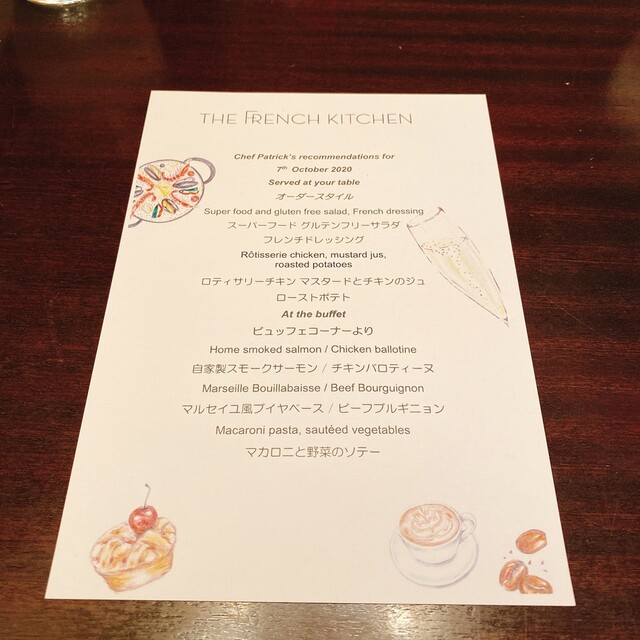 THE FRENCH KITCHEN
Chef Patrick's recommendations for
7th October 2020
Served at your table
オーダースタイル
Super food and gluten free salad, French dressing
スーパーフード グルテンフリーサラダ
フレンチドレッシング
Rôtisserie chicken, mustard jus,
roasted potatoes
ロティサリーチキン マスタードとチキンのジュ
ローストポテト
At the buffet
ビュッフェコーナーより
Home smoked salmon / Chicken ballotine
自家製スモークサーモン / チキンバロティーヌ
Marseille Bouillabaisse / Beef Bourguignon
マルセイユ風ブイヤベース / ビーフブルギニョン
Macaroni pasta, sautéed vegetables
マカロニと野菜のソテー